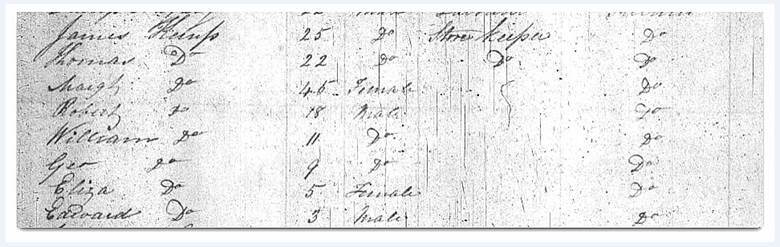 James Kemp 25 Do Store Keeper Do
Thomas Do 22 Do Do Do
Margt Do 45 Female Do
Robert Do 18 Male Do
William Do 11 Do Do
Geo Do 9 Do Do
Eliza Do 5 Female Do
Edward Do 3 Male Do